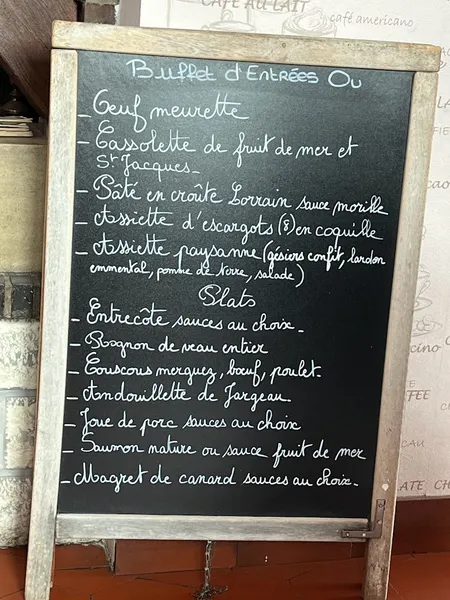 CAFÉ AU LAIT
café americano
Buffet d'Entrées Ou
_ Oeuf meurette
_ Cassolette de fruit de mer et
St Jacques_
_ Pâté en croûte Lorrain sauce morille
_ Assiette d'escargots (8) en coquille
_ Assiette paysanne (gésiers confit, lardon
emmental, pomme de terre, salade)
Plats
_ Entrecôte sauces au choix_
_ Rognon de veau entier
_ Couscous merguez, bœuf, poulet_
_ Andouillette de Jargeau_
_ Joue de porc sauces au choix
_ Saumon nature ou sauce fruit de mer
_ Magret de canard sauces au choix_